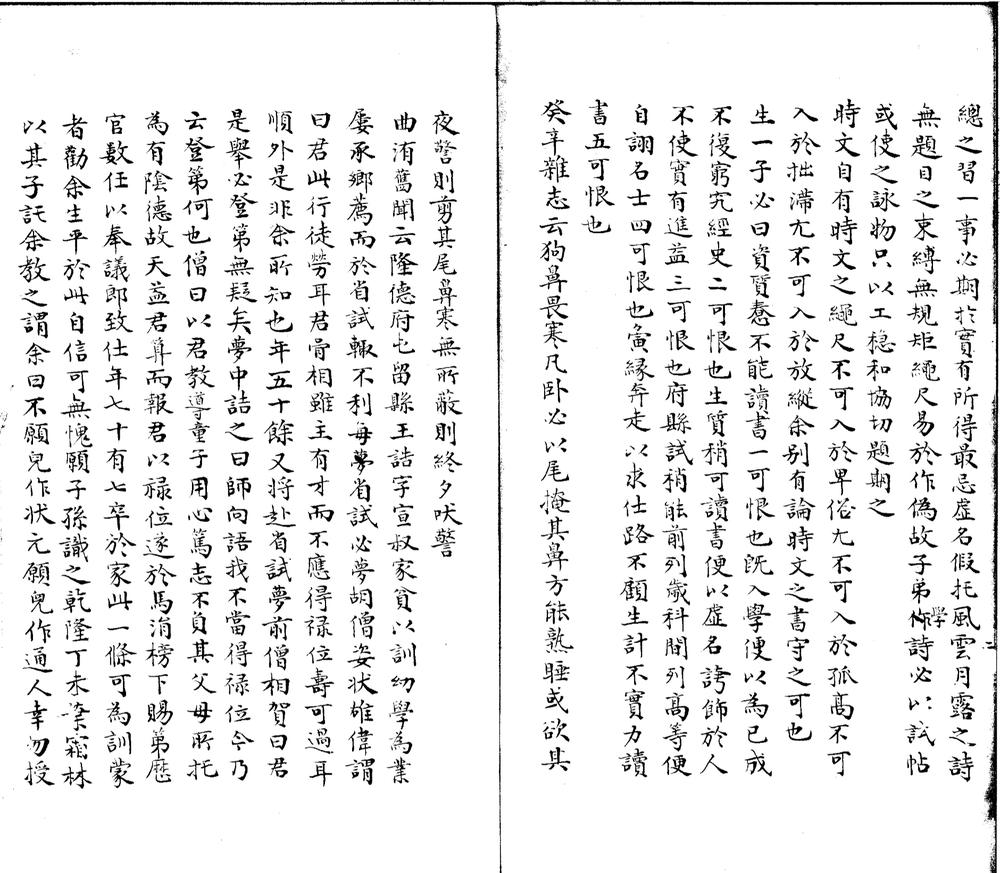 總之習一事必期於實有所得最忌虛名假托風雲月露之詩
無題目之束縛無規矩繩尺易於作偽故子弟學作詩必以試帖
或使之詠物只以工穩和協切題期之
時文自有時文之繩尺不可入於卑俗尤不可入於孤高不可
入於拙滯尤不可入於放縱余别有論時文之書守之可也
生一子必曰資質蠢不能讀書一可恨也既入學便以為已成
不復窮究經史二可恨也生質稍可讀書便以虛名誇飾於人
不使實有進益三可恨也府縣試稍能前列歲科間列高等便
自詡名士四可恨也夤緣奔走以求仕路不顧生計不實力讀
書五可恨也
癸辛雜志云狗鼻畏寒凡卧必以尾掩其鼻方能熟睡或欲其
夜警則剪其尾鼻寒無所蔽則終夕吠警
曲洧舊聞云隆德府屯留縣王誥字宣叔家貧以訓幼學為業
屢承鄉薦而於省試輒不利每夢省試必夢胡僧姿狀雄偉謂
曰君此行徒勞耳君骨相雖主有才而不應得禄位壽可過耳
順外是非余所知也年五十餘又将赴省試夢前僧相賀曰君
是舉必登第無疑矣夢中詰之曰師向語我不當得禄位今乃
云登第何也僧曰以君教導童子用心篤志不負其父母所托
為有陰德故天益君算而報君以禄位遂於馬涓榜下賜第歷
官數任以奉議郎致仕年七十有七卒於家此一條可為訓蒙
者勸余生平於此自信可無愧願子孫識之乾隆丁未業霜林
以其子託余教之謂余曰不願兒作状元願兒作通人幸勿授